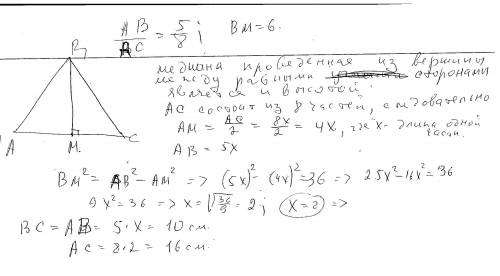 AB/AC = 5/8; BM=6.
B
медиана проведенная из вершины
между равными сторонами
является и высотой.
AC состоит из 8 частей, следовательно
AM = AC/2 = 8x/2 = 4x, где x - длина одной
части.
AB = 5x
A M C
BM² = AB² - AM² => (5x)² - (4x)² = 36 => 25x² - 16x² = 36
9x² = 36 => x = √36/9 = 2; x = 2 =>
BC = AB = 5·x = 10 см.
AC = 8·2 = 16 см.